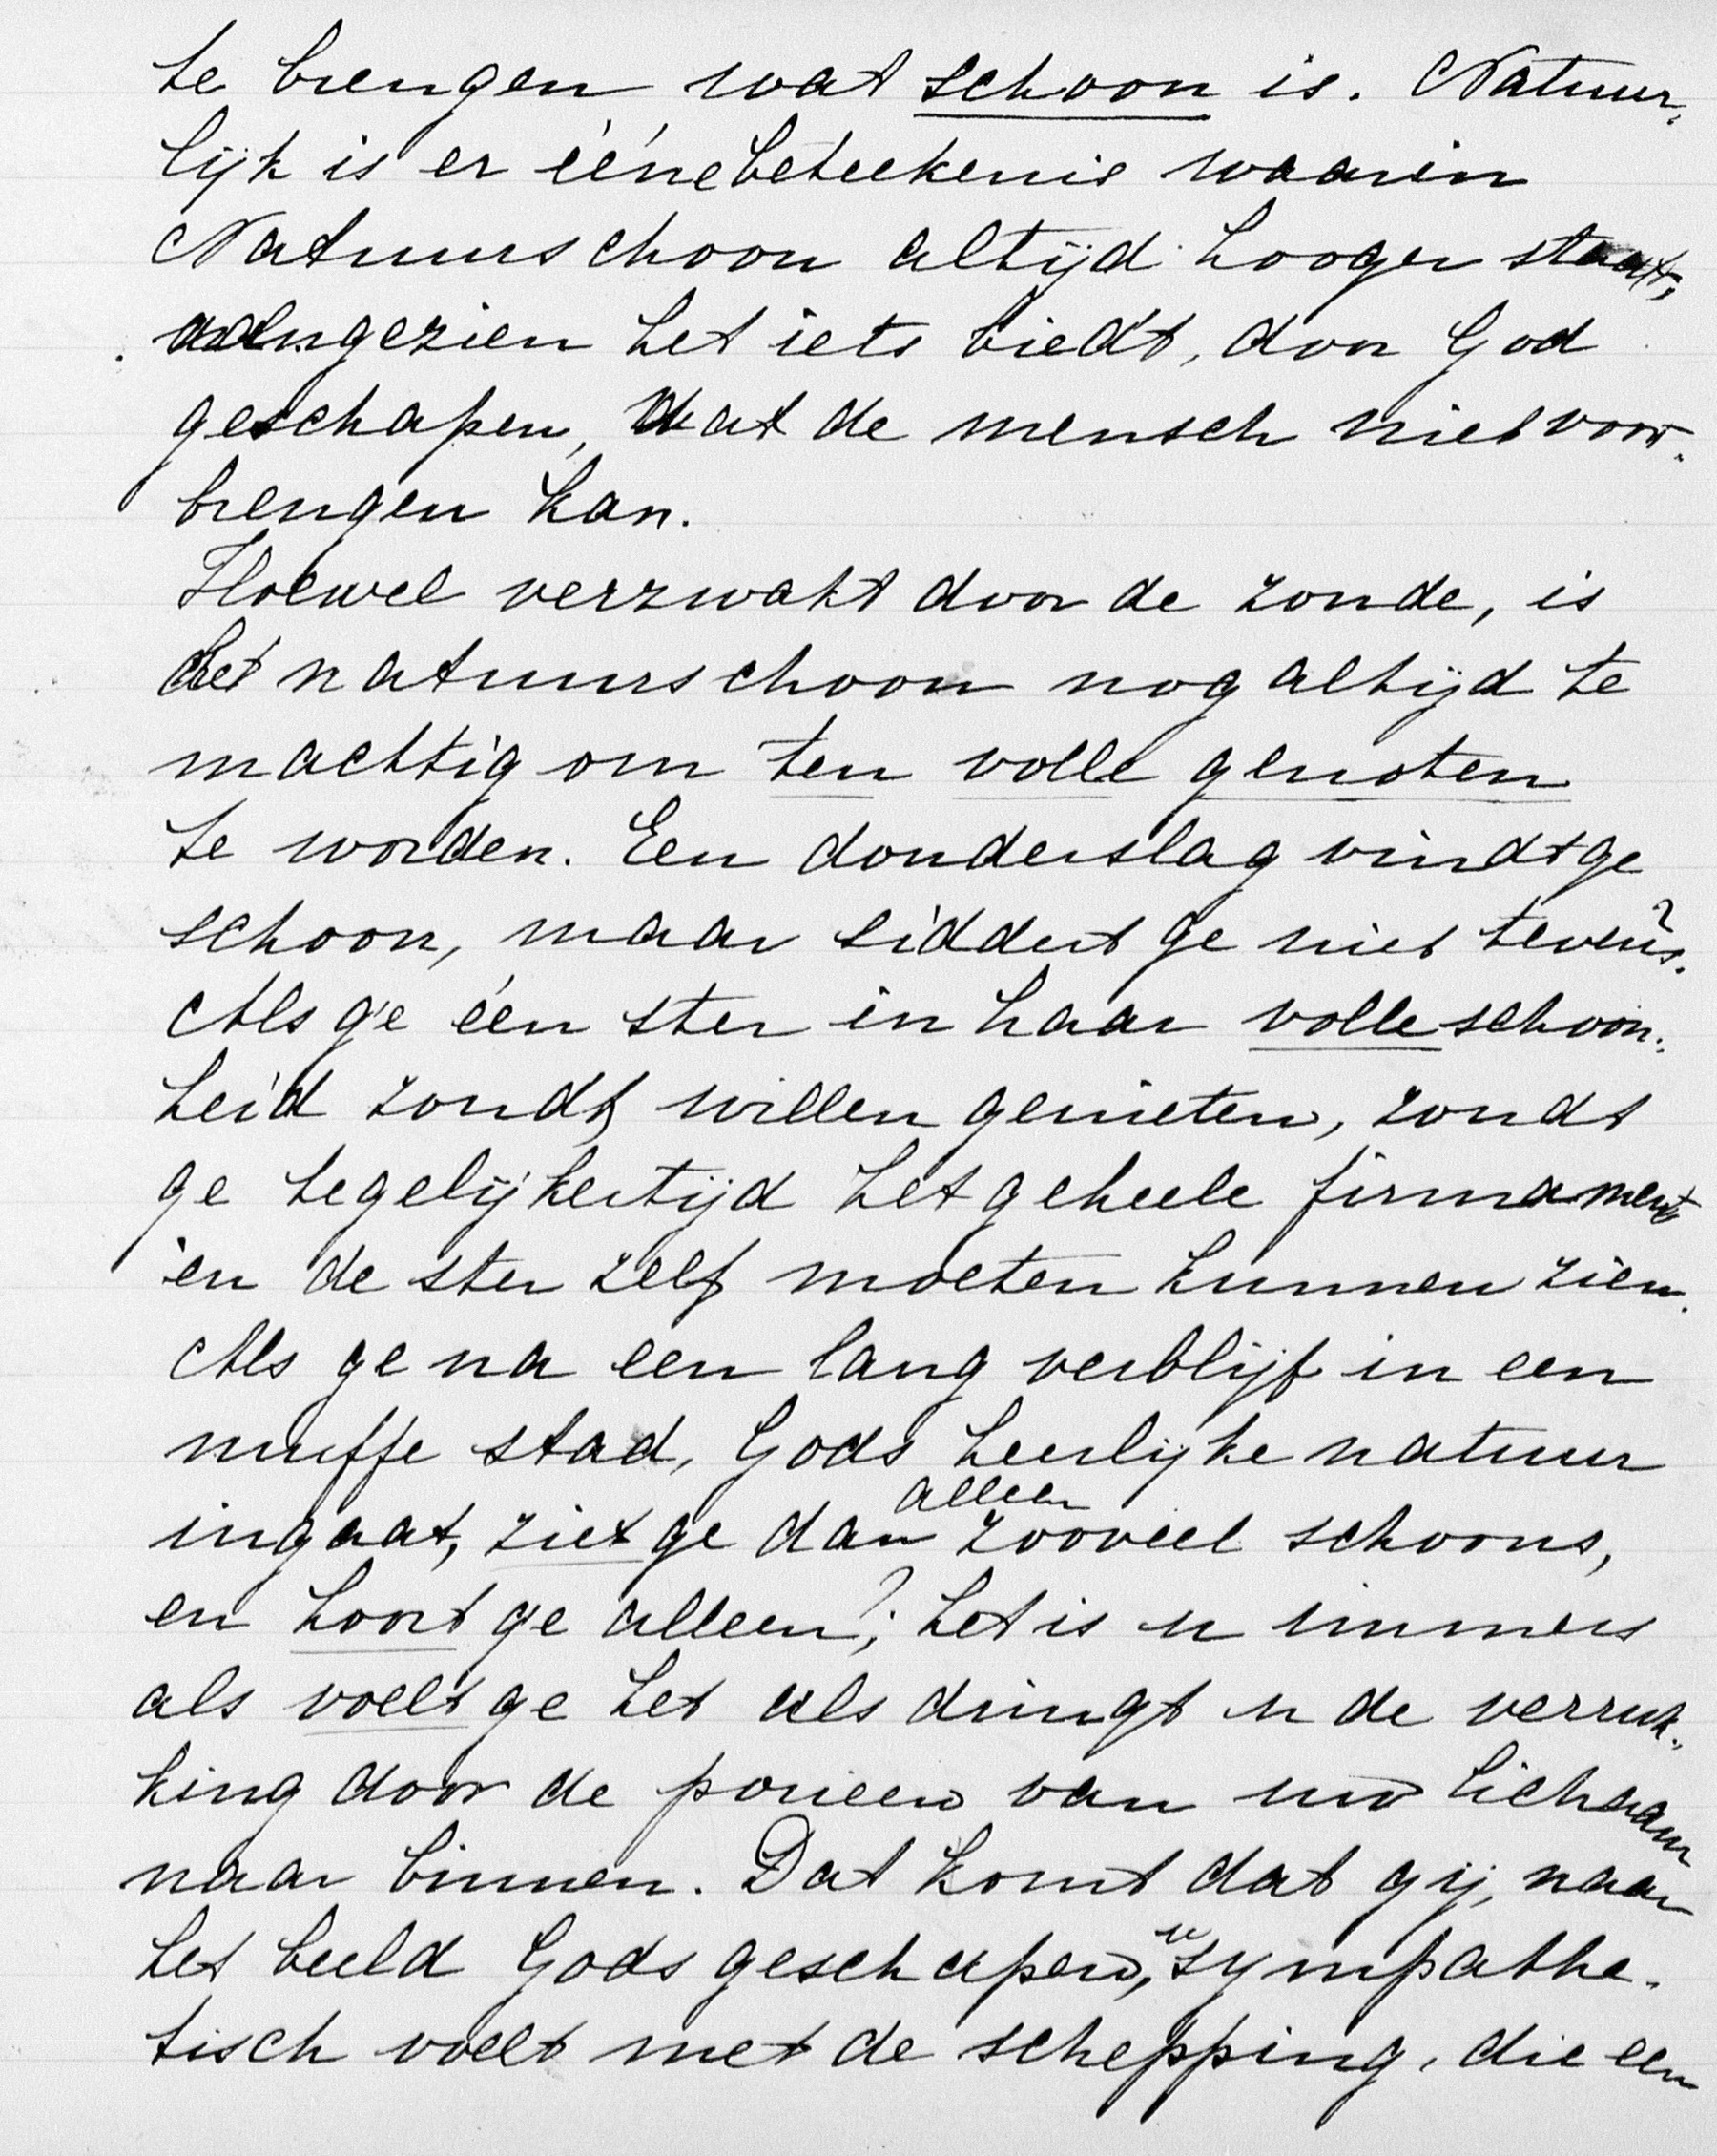 te brengen wat schoon is. Natuur-
lijk is er ééne beteekenis waarin
Natuurschoon altijd hooger staat,
aangezien het iets biedt, door God
geschapen, dat de mensch niet voor-
brengen kan.
Hoewel verzwakt door de zonde, is
het natuurschoon nog altijd te
machtig om ten volle genoten
te worden. Een donderslag vindt ge
schoon, maar siddert ge niet tevens?
Als ge één ster in haar volle schoon-
heid zoudt willen genieten, zoudt
ge tegelijkertijd het geheele firmament
en de ster zelf moeten kunnen zien.
Als ge na een lang verblijf in een
muffe stad, Gods heerlijke natuur
ingaat, ziet ge dan alleen zooveel schoons,
en hoort ge alleen?; het is u immers
als voelt ge het als dringt u de verruk-
king door de porieen van uw lichaam
naar binnen. Dat komt dat gij, naar
het beeld Gods geschapen, u sympathe-
tisch voelt met de schepping, die een